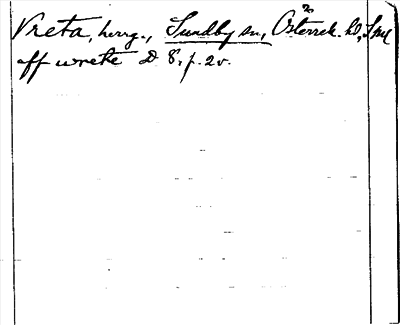 Vreta, herrg., Sundby sn, Österrek. hd, Sml
aff wrete D 8, p. 2v.